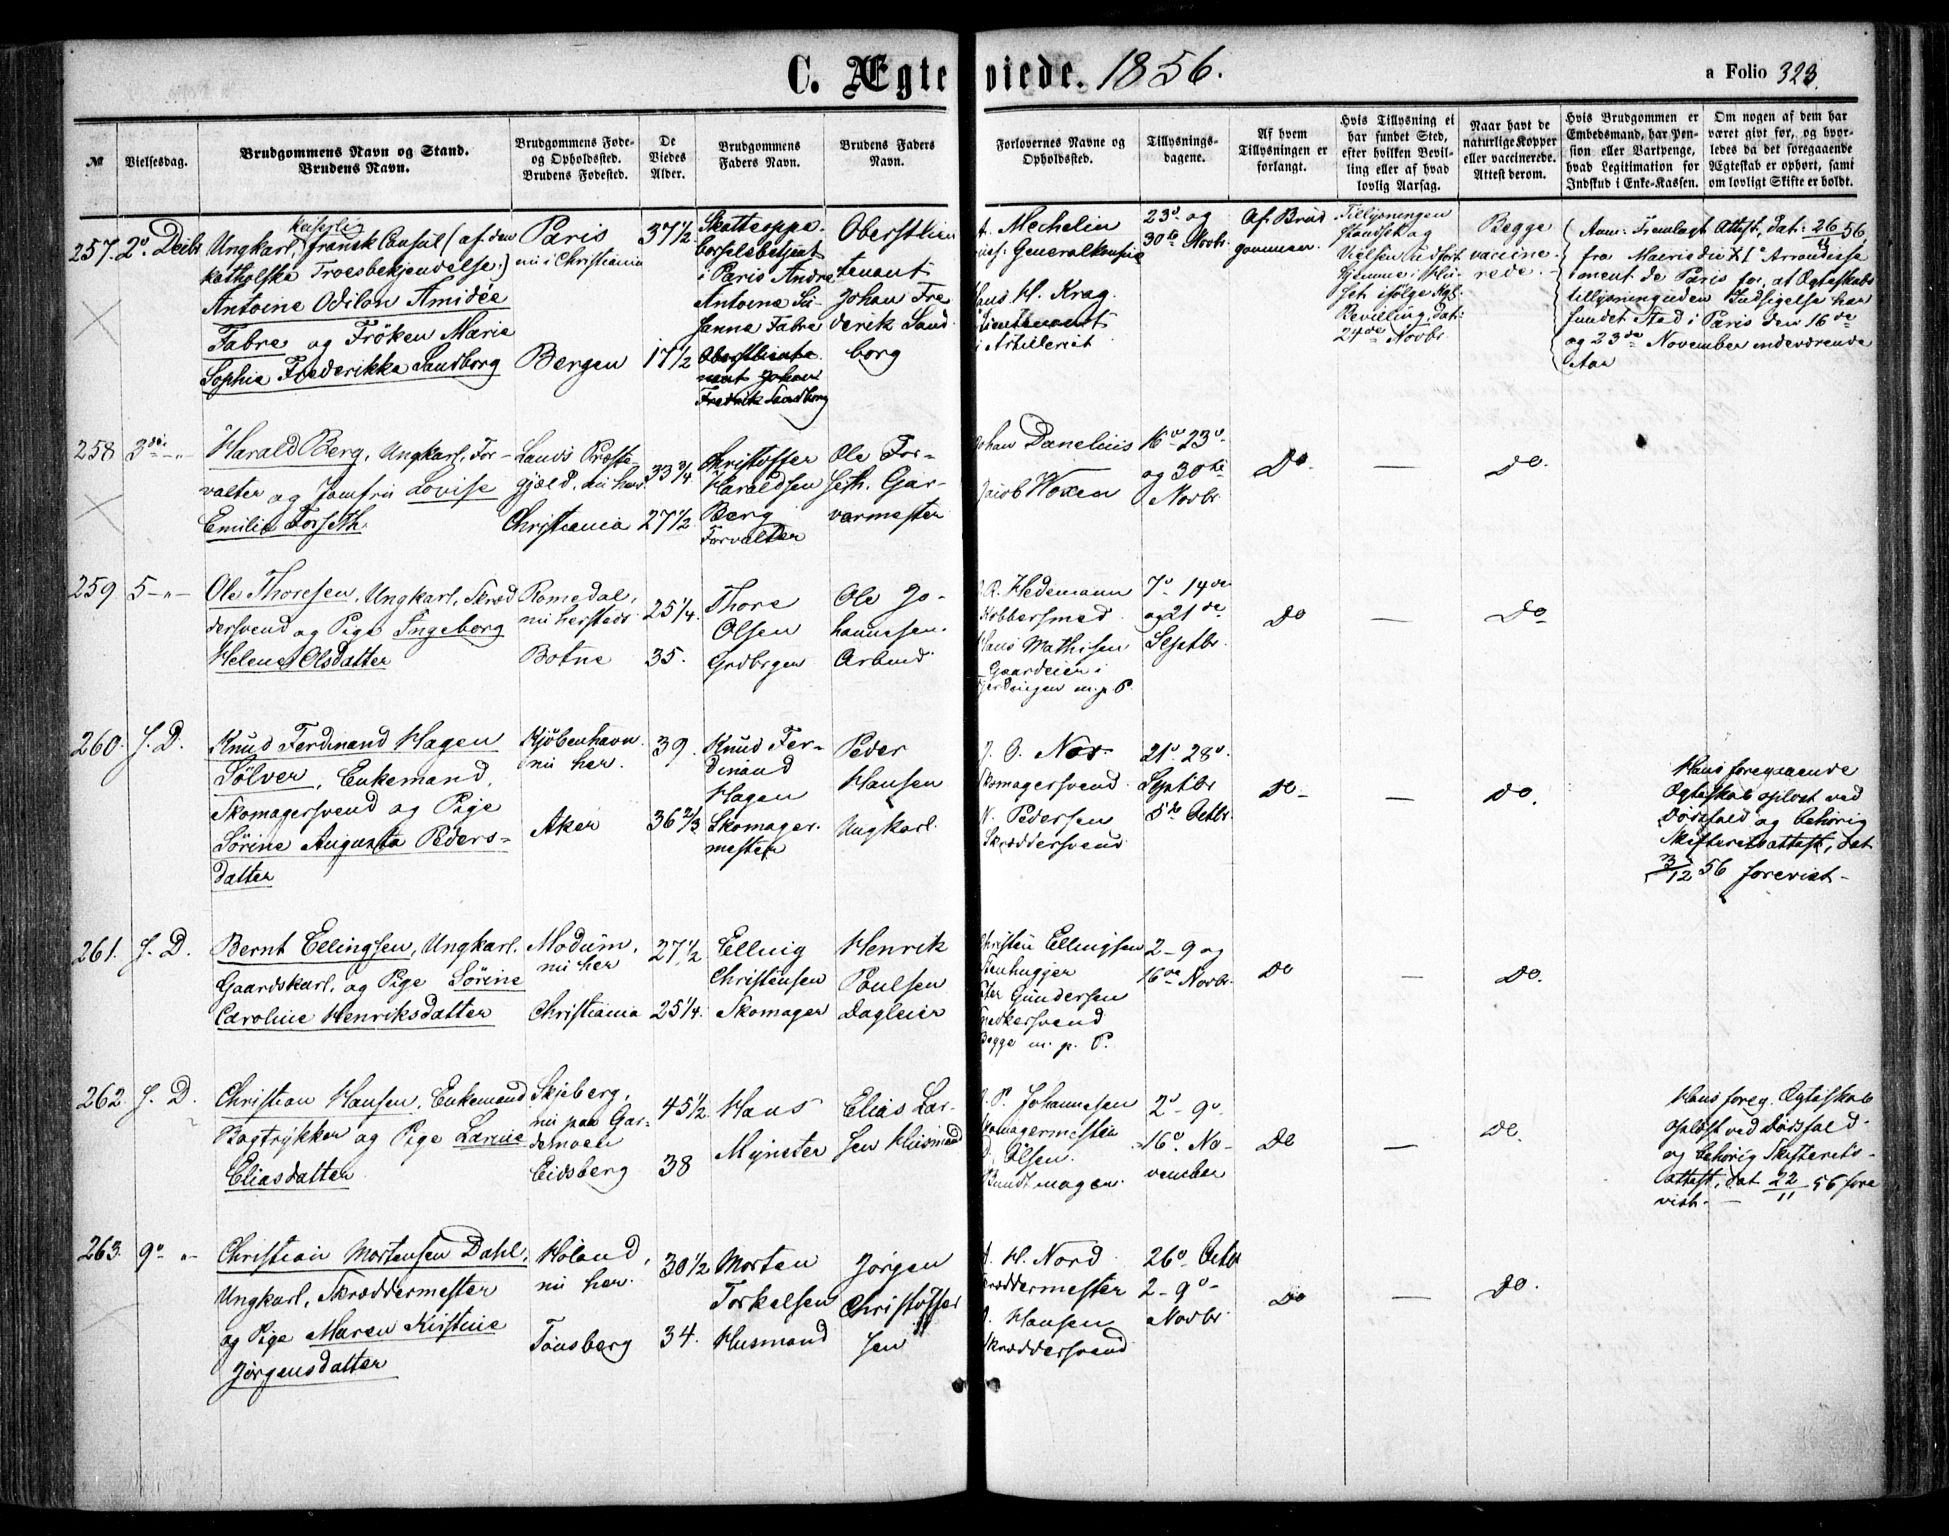 C. Ægteviede. 1856.
a Folio 323.
№
Vielsesdag.
Brudgommens Navn og Stand.
Brudens Navn.
Brudgommens Føde-
og Opholdssted.
Brudens Fødested.
De
Viedes
Alder.
Brudgommens
Faders Navn.
Brudens Faders
Navn.
Forlovernes Navne og
Opholdssted.
Tillysnings-
dagene.
Af hvem
Tillysningen er
forlangt.
Hvis Tillysning ei
har fundet Sted,
efter hvilken Bevil-
ling eller af hvad
lovlig Aarsag.
Naar havt de
naturlige Kopper
eller vaccinerede.
Attest derom.
Hvis Brudgommen er
Embedsmand, har Pen-
sion eller Vartpenge,
hvad Legitimation for
Indskud i Enke-Kassen.
Om nogen af dem har
været gift før, og hvor-
ledes da det foregaaende
Ægteskab er ophørt, samt
om lovligt Skifte er holdt.
257. 2den Decbr
Ungkarl, keiserlig fransk Consul (af den
katholske Troesbekjendelse.)
Antoine Odilon Amidée
Fabre og Frøken Marie
Sophie Frederikke Sandborg
Paris
nu i Christiania
Bergen
37 1/2
17 1/2
Skatteoppe-
børselsbetjent
i Paris Andre
Antoine Su-
sanne Fabre
Oberstlieute-
nant Johan
Fredrik Sandborg
Oberstlieu-
tenant
Johan Fre
derik Sand
borg
A. Mechelin
Generalkonsul
Hans H. Krag.
Lieutenant
i Artilleriet
23de og
30te Novbr.
Af Brud
gommen.
Tillysningen
standset og
Vielsen udført
hjemme i Hu-
set ifølge Kgl.
Bevilling, dat:
24de Novbr.
Begge
vaccine-
rede.
Anm: Fremlagt Attest, dat: 26/11 56,
fra Mairie du XI Arrondisse
ment de Paris for, at Ægteskabs
tillysning uden Indsigelse har
fundet Sted i Paris den 16de
og 23de November indeværende
Aar
258 3die "
Harald Berg, Ungkarl, For-
valter og Jomfru Lovise
Emilie Forseth.
Lands Præste
gjæld, nu her
Christiania
33 3/4
27 1/2
Christoffer
Haraldsen
Berg
Forvalter
Ole For-
seth. Gar-
vermester
Johan Danelius
Jacob Woxen
16de 23de
og 30te
Novbr
Do.
—
Do.
259 5 – " –
Ole Thoresen, Ungkarl, Skræd
dersvend og Pige Ingeborg
Helene Olsdatter
Romedal,
nu hersteds
Botne
25 1/4.
35.
Thore
Olsen
Grdbrgen
Ole Jo-
hannesen.
Arbmd.
P. Hedemann
Kobbersmed
Hans Mathisen
Gaardeier i
m. p. P.
7de 14de
og 21de
Septbr
Do
—
Do
260. J. D.
Knud Ferdinand Hagen
Sölver, Enkemand,
Skomagersvend og Pige
Sörine Augusta Peders-
datter
Kjøbenhavn
nu her.
Aker
39.
36 2/3
Knud Fer-
dinand
Hagen
Skomager-
mester
Peder
Hansen
Ungkarl.
J. O. Nor
Skomagersvend
N. Pedersen
Skræddersvend
21de 28de
Septbr
5te Octbr.
Do –
—
Do.
Hans foregaaende
Ægteskab oplöst ved
Dödsfald og behörig
Skifteretsattest, dat
3/12 56 forevist –
261. J. D.
Bernt Ellingsen, Ungkarl.
Gaardskarl, og Pige Sörine
Caroline Henriksdatter
Modum,
nu her
Christiania
27 1/2
25 1/4.
Elling
Christensen
Skomager
Henrik
Poulsen
Dagleier
Christen Ellingsen
Stenhugger
Peter Gundersen
Snedkersvend
Begge m. p. P.
2 – 9 og
16de Novbr.
Do
—
Do.
262. J. D.
Christian Hansen, Enkemand
Bogtrykker og Pige Larine
Eliasdatter
Skjeberg,
nu paa Gar-
dermoen
Eidsberg
45 1/2
38
Hans
Mynster
Elias Lar-
sen Husmand
P. Johannesen
Skomagermester
Olsen.
Buntmager.
2de – 9de
– 16de No-
vember
Do
—
Do.
Hans foreg. Ægteskab
oplöst ved Dödsfald
og behörig Skifterets-
attest, dat 22/11 56 fore
vist –
263. 9de " –
Christian Mortensen Dahl,
Ungkarl, Skræddermester
og Pige Maren Kirstine
Jörgensdatter
Höland,
nu her.
Tönsberg
30 1/2
34.
Morten
Torkelsen
Husmand
Jörgen
Christoffer
sen
A. H. Nord
Skræddermester
Hansen
Skræddersvend
26de Octbr
2 – 9de –
Novbr
Do
—
Do.